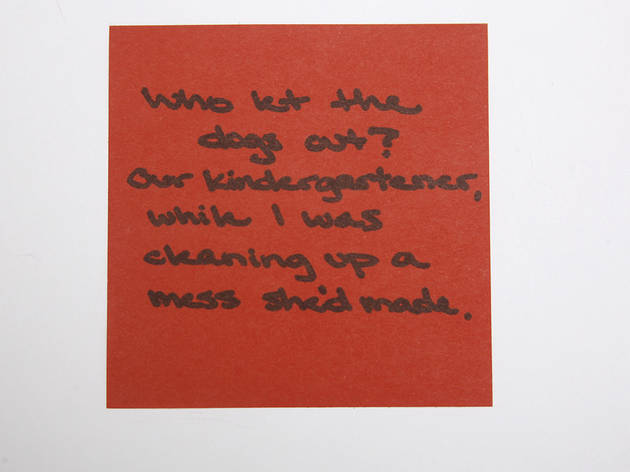 Who let the
dogs out?
Our kindergartener,
while I was
cleaning up a
mess she'd made.